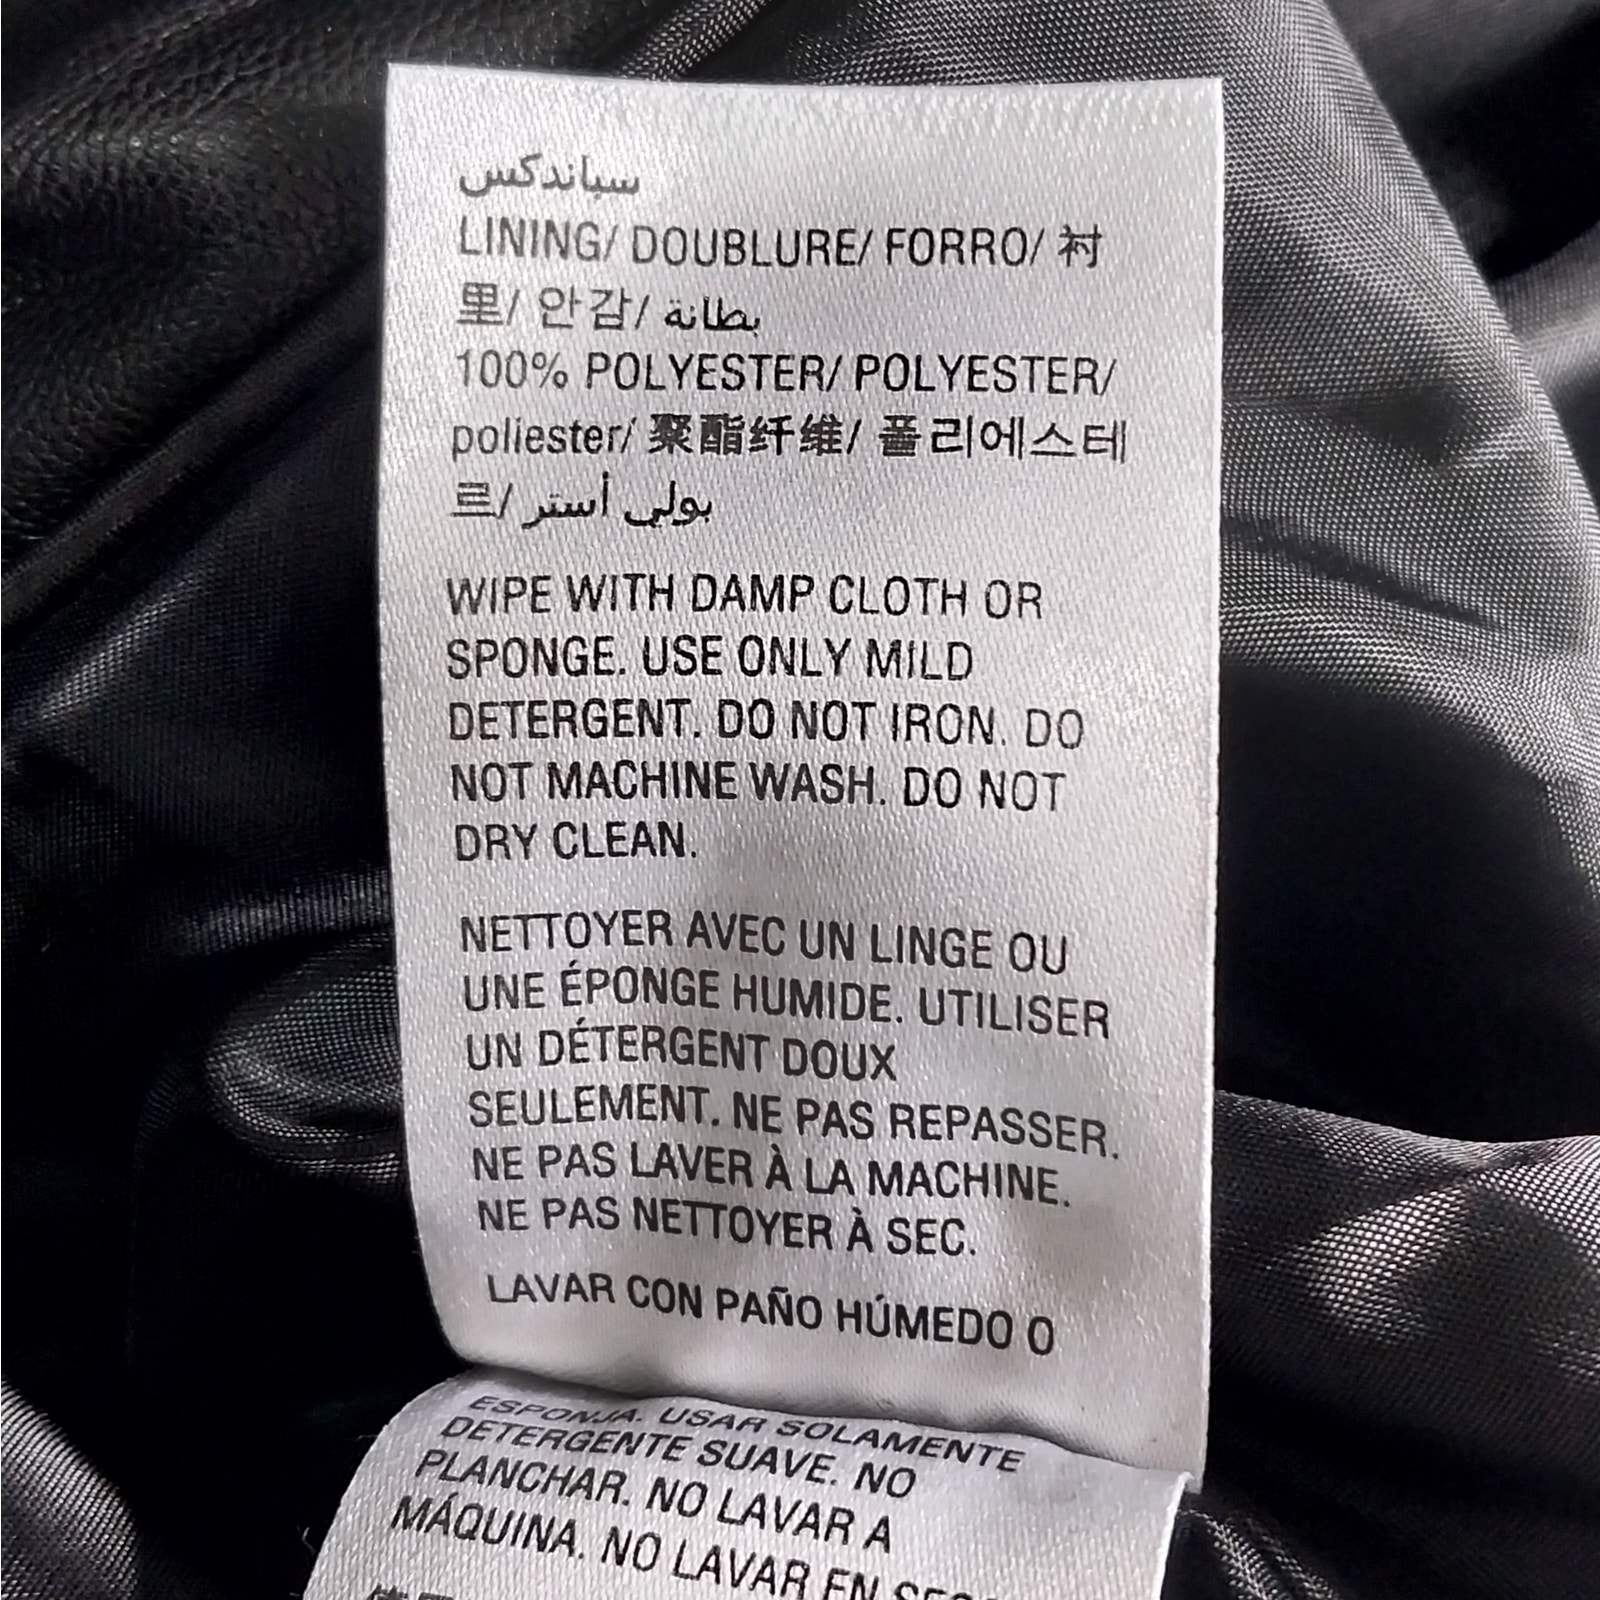 سباندكس
LINING/ DOUBLURE/ FORRO/ 衬
里/ 안감/ بطانة
100% POLYESTER/ POLYESTER/
poliester/ 聚酯纤维/ 폴리에스테
르/ بولي أستر
WIPE WITH DAMP CLOTH OR
SPONGE. USE ONLY MILD
DETERGENT. DO NOT IRON. DO
NOT MACHINE WASH. DO NOT
DRY CLEAN.
NETTOYER AVEC UN LINGE OU
UNE ÉPONGE HUMIDE. UTILISER
UN DÉTERGENT DOUX
SEULEMENT. NE PAS REPASSER.
NE PAS LAVER À LA MACHINE.
NE PAS NETTOYER À SEC.
LAVAR CON PAÑO HÚMEDO O
ESPONJA. USAR SOLAMENTE
DETERGENTE SUAVE. NO
PLANCHAR. NO LAVAR A
MÁQUINA. NO LAVAR EN